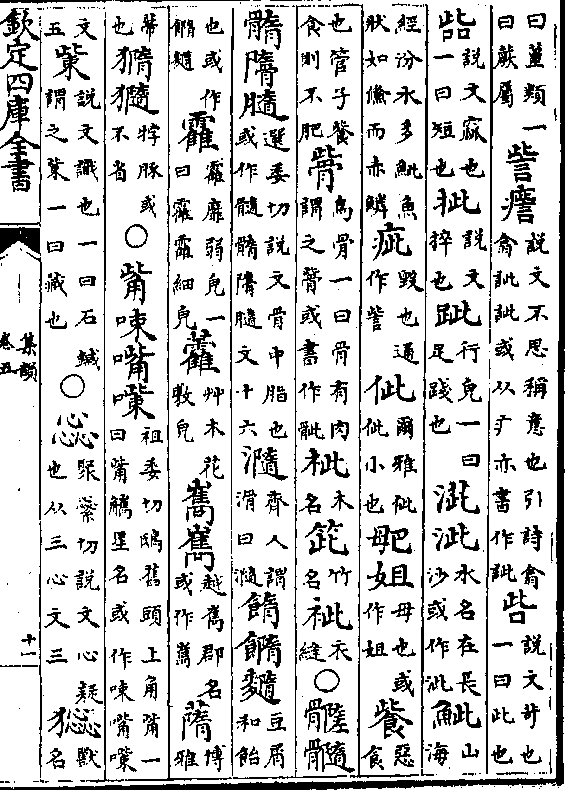 曰䕩類一曰蕨屬 訾㿑 說文不思稱意也引詩翕翕訿訿或从疒亦書作訿 呰 說文苛也一曰此也
啙 說文寙也一曰短也 㧗 說文捽也 跐 行皃一曰足踐也 㴲泚 水名在長沙或作泚 鮆 山海
經汾水多鮆魚狀如儵而赤鱗 疵 毀也通作訾 佌 爾雅佌佌小也 姐 母也或作姐 飺 惡食
也管子飺食則不肥 骴 鳥骨一曰骨有肉謂之骴或書作骴 木名 竹名 衣縫 ○ 髓
膸 選委切說文骨中脂也或作髓膸文十六 瀡 齊人謂滑曰瀡 豆屑和飴
也或作 靃 靃靡弱皃一曰靃靃細皃 蘳 艸木花敷皃 巂嶲 越巂郡名或作嶲 博雅
也 牸豚或不省 ○ 觜㖢嘴㗱 祖委切鴟舊頭上角觜一曰觜觹星名或作㖢嘴㗱
文五 㭰 說文識也一曰石鍼謂之㭰一曰藏也 ○ 惢 聚縈切說文心疑也从三心文三 獸名
欽定四庫全書
集韻
卷五
十一